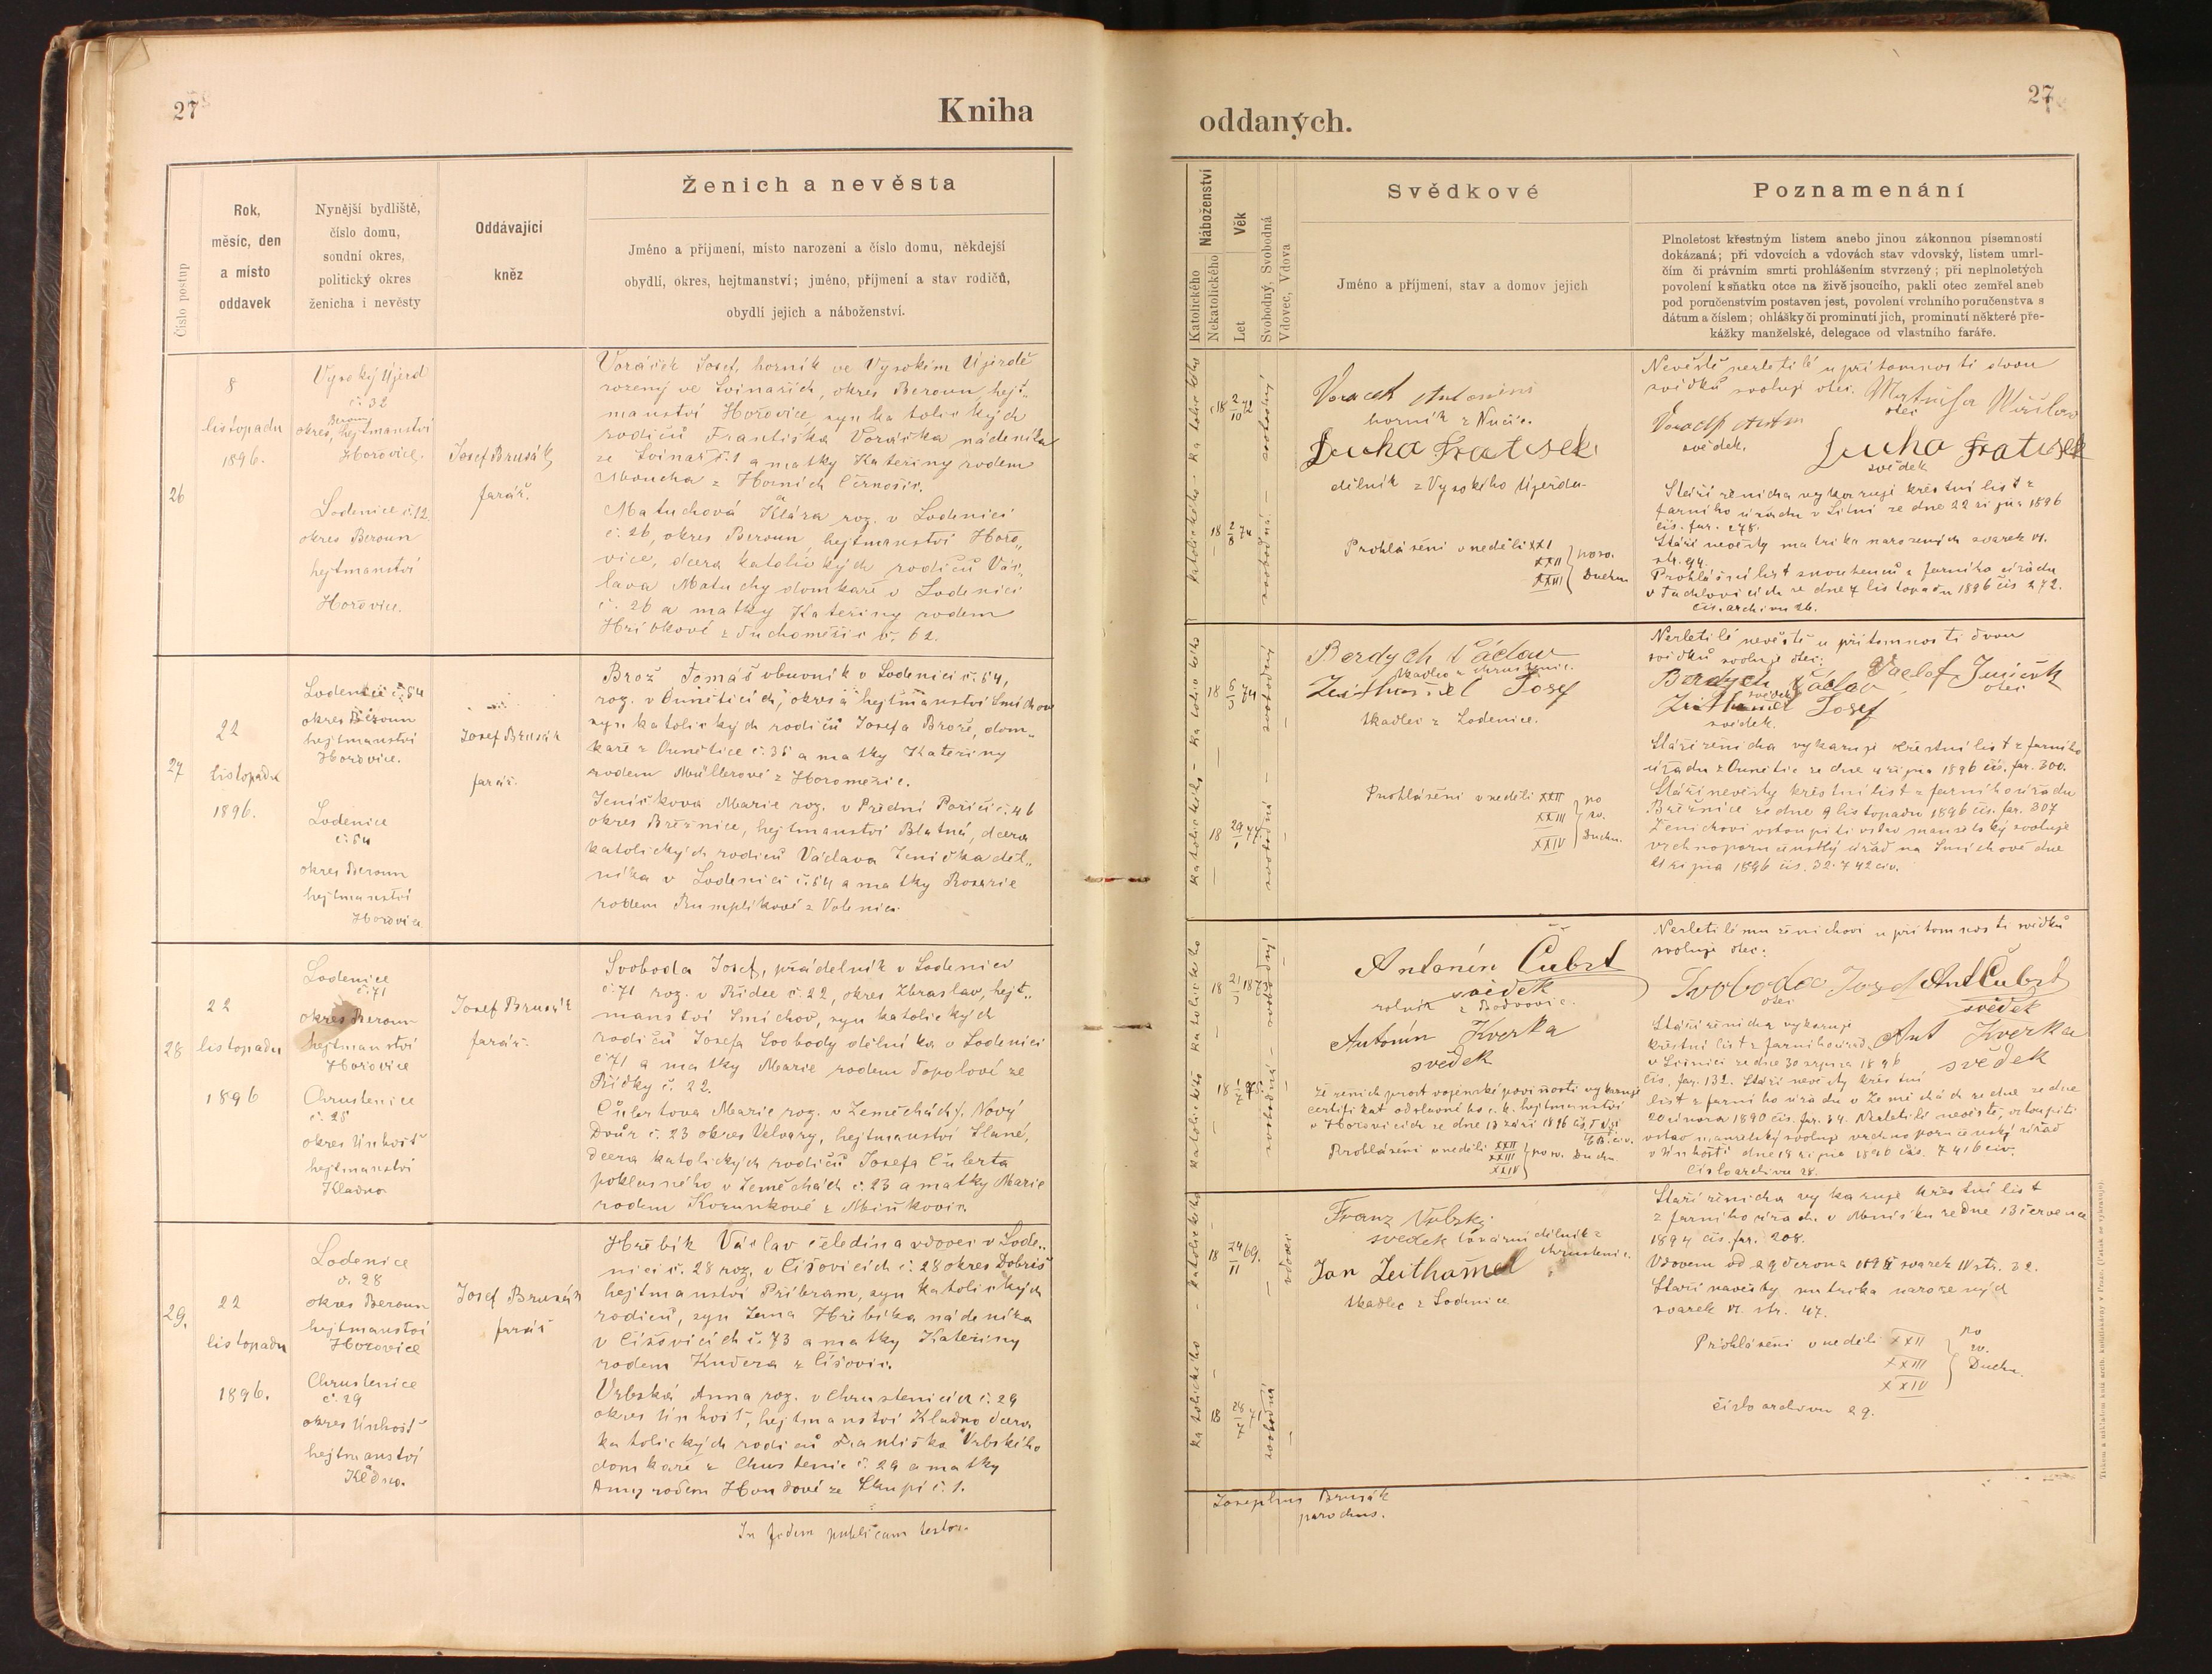 27
Kniha
Číslo postup
Rok,
měsíc, den
a místo
oddavek
Nynější bydliště,
číslo domu,
soudní okres,
politický okres
ženicha i nevěsty
Oddávající
kněz
Ženich a nevěsta
Jméno a příjmení, místo narození a číslo domu, někdejší
obydlí, okres, hejtmanství; jméno, příjmení a stav rodičů,
obydlí jejich a náboženství.
26
8
listopadu
1896.
Vysoký Újezd
č. 32
Beroun
okres, hejtmanství
Hořovice.
Loděnice č. 12.
okres Beroun
hejtmanství
Hořovice.
Josef Brusák
farář.
Voráček Josef, horník ve Vysokém Újezdě
rozený ve Svinařích, okres Beroun, hejt„
manství Hořovice, syn katolických
rodičů Františka Voráčka nádeníka
ze Svinař č. 1 a matky Kateřiny rodem
z Horních Černošic.
Matuchová Klára roz. v Loděnici
č. 26, okres Beroun, hejtmanství Hořo„
vice, dcera katolických rodičů Vác„
lava Matuchy domkaře v Loděnici
č. 26 a matky Kateřiny rodem
Hříbkové z Tuchoměřic č. 62.
27
22
listopadu
1896.
Loděnice č. 54
okres Beroun
hejtmanství
Hořovice.
Loděnice
č. 54
okres Beroun
hejtmanství
Hořovice
Josef Brusák
farář.
Brož Tomáš obuvník v Loděnici č. 54,
roz. v Ouněticích, okres a hejtmanství Smíchov
syn katolických rodičů Josefa Brože, dom„
kaře z Ounětice č. 35 a matky Kateřiny
rodem Müllerové z Horoměřic.
Jeníčkova Marie roz. v Přední Poříčí č. 46
okres Březnice, hejtmanství Blatná, dcera
katolických rodičů Václava Jeníčka děl„
níka v Loděnici č. 54 a matky Rosarie
rodem Rumplíkové z Volenic.
28
22
listopadu
1896
Loděnice
č. 71
okres Beroun
hejtmanství
Hořovice
Chrustenice
č. 25
okres Unhošť
hejtmanství
Kladno
Josef Brusák
farář.
Svoboda Josef, přádelník v Loděnici
č. 71 roz. v Řidce č. 22, okres Zbraslav, hejt„
manství Smíchov, syn katolických
rodičů Josefa Svobody dělníka v Loděnici
č. 71 a matky Marie rodem Topolové ze
Řidky č. 22.
Čubrtova Marie roz. v Zeměchách, Nový
Dvůr č. 23 okres Velvary, hejtmanství Slané,
dcera katolických rodičů Josefa Čubrta
poklasného v Zeměchách č. 23 a matky Marie
rodem Korunkové z Miškovic.
29.
22
listopadu
1896.
Loděnice
č. 28
okres Beroun
hejtmanství
Hořovice
Chrustenice
č. 29
okres Unhošť
hejtmanství
Kladno.
Josef Brusák
farář
Hřebík Václav čeledín a vdovec v Lodě„
nici č. 28 roz. v Číšovicích č. 28 okres Dobříš
hejtmanství Příbram, syn katolických
rodičů, syn Jana Hřebíka nádeníka
v Číšovicích č. 73 a matky Kateřiny
rodem Kučera z Číšovic.
Vrbská Anna roz. v Chrustenicích č. 29
okres Unhošť, hejtmanství Kladno dcera
katolických rodičů Františka Vrbského
domkaře z Chrustenic č. 29 a matky
Anny rodem Houdové ze Sloupí č. 1.
In fidem publicam testor.
27
oddaných.
Náboženství
Katolického
Nekatolického
Věk
Let
Svobodný, Svobodná
Vdovec, Vdova
Svědkové
Jméno a příjmení, stav a domov jejich
Poznamenání
Plnoletost křestným listem anebo jinou zákonnou písemností
dokázaná; při vdovcích a vdovách stav vdovský, listem umrl-
čím či právním smrti prohlášením stvrzený; při neplnoletých
povolení k sňatku otce na živě jsoucího, pakli otec zemřel aneb
pod poručenstvím postaven jest, povolení vrchního poručenstva s
dátum a číslem; ohlášky či prominutí jich, prominutí některé pře-
kážky manželské, delegace od vlastního faráře.
katolického - katolického
18 2/10 72
18 2/8 74
svobodná - svobodný
Voracek Antonín
horník z Nučic.
Ducha Fratisek
dělník z Vysokého Újezda.
Prohlášení v neděli XXI
XXII
XXIII
po sv.
Duchu
Nevěstě nezletilé u přítomnosti dvou
svědků svoluje otec. Matucha Václav
otec
svědek.
Ducha Fratisek
svědek
Stáří ženicha vykazuje křestní list z
farního úřadu v Litni ze dne 22 října 1896
čís. far. 278.
Stáří nevěsty matrika narozených svazek VI.
str. 94.
Prohlášní list snoubenců z farního úřadu
v Tachlovicích ze dne 7 listopadu 1896 čís 272.
čís. archivu 26.
katolického - katolického
18 6/5 74
18 29/1 77
svobodná - svobodný
Berdych Václav
tkadlec z Chrustenic.
Zeithamel Josef
tkadlec z Loděnice.
Prohlášení v neděli XXII
XXIII
XXIV
po
sv.
Duchu.
Nezletilé nevěstě u přítomnosti dvou
svědků svoluje otec: Vaclaf Jeníček
otec
Berdych Václav
svědek
Zeithamel Josef
svědek.
Stáří ženicha vykazuje křestní list z farního
úřadu z Ounětic ze dne 4 října 1896 čís. far. 300.
Stáří nevěsty křestní list z farního úřadu
Březnice ze dne 9 listopadu 1896 čís. far. 307
Ženichovi vstoupiti v stav manželský svoluje
vrchnoporučenský úřad na Smíchově dne
října 1896 čís. 32.742 civ.
katolického - katolického
svobodná - svobodný
Antonín Čubrt
svědek
rolník z
Antonín Kverka
svědek
že ženich prost vojenské povinnosti vykazuje
certifikat od slavného c. k. hejtmanství
v Hořovicích ze dne 13 září 1896
Prohlášení v neděli XXII
XXIII
XXIV
po sv. Duchu
Nezletilému ženichovi u přítomnosti svědků
svoluje otec:
Svoboda Josef Ant Čubrt
otec
svědek
Stáří ženicha vykazuje Ant Kverka
křestní list z farního úřad. svědek
v Líšnici ze dne 30 srpna 1896
čís. far. 132. Stáří nevěsty křestní
list z farního úřadu v Zeměchách ze dne
20 února 1890 čís. far. 34. Nezletilé nevěstě, vstoupiti
v stav manželský svoluje vrchnoporučenský úřad
v Unhošti dne 18 října 1896 čís. 7416 civ.
Číslo archivu 28.
katolického - katolického
18 24/11 69.
18 28/7 71
svobodná
vdovec
Franz Vrbský
svědek tovární dělník z
Chrustenic.
Jan Zeithamel
tkadlec z Loděnice
Staří ženicha vykazuje křestní list
z farního úřadu v Mníšku ze dne 13 července
1894 čís. far. 208.
Vdovcem od 29 června 1895 svazek IV str. 32.
Staří nevěsty matrika narozených
svazek VI. str. 47.
Prohlášení v neděli XXII
XXIII
XXIV
po
sv.
Duchu.
číslo archivu 29.
Josephus Brusák
parochus.